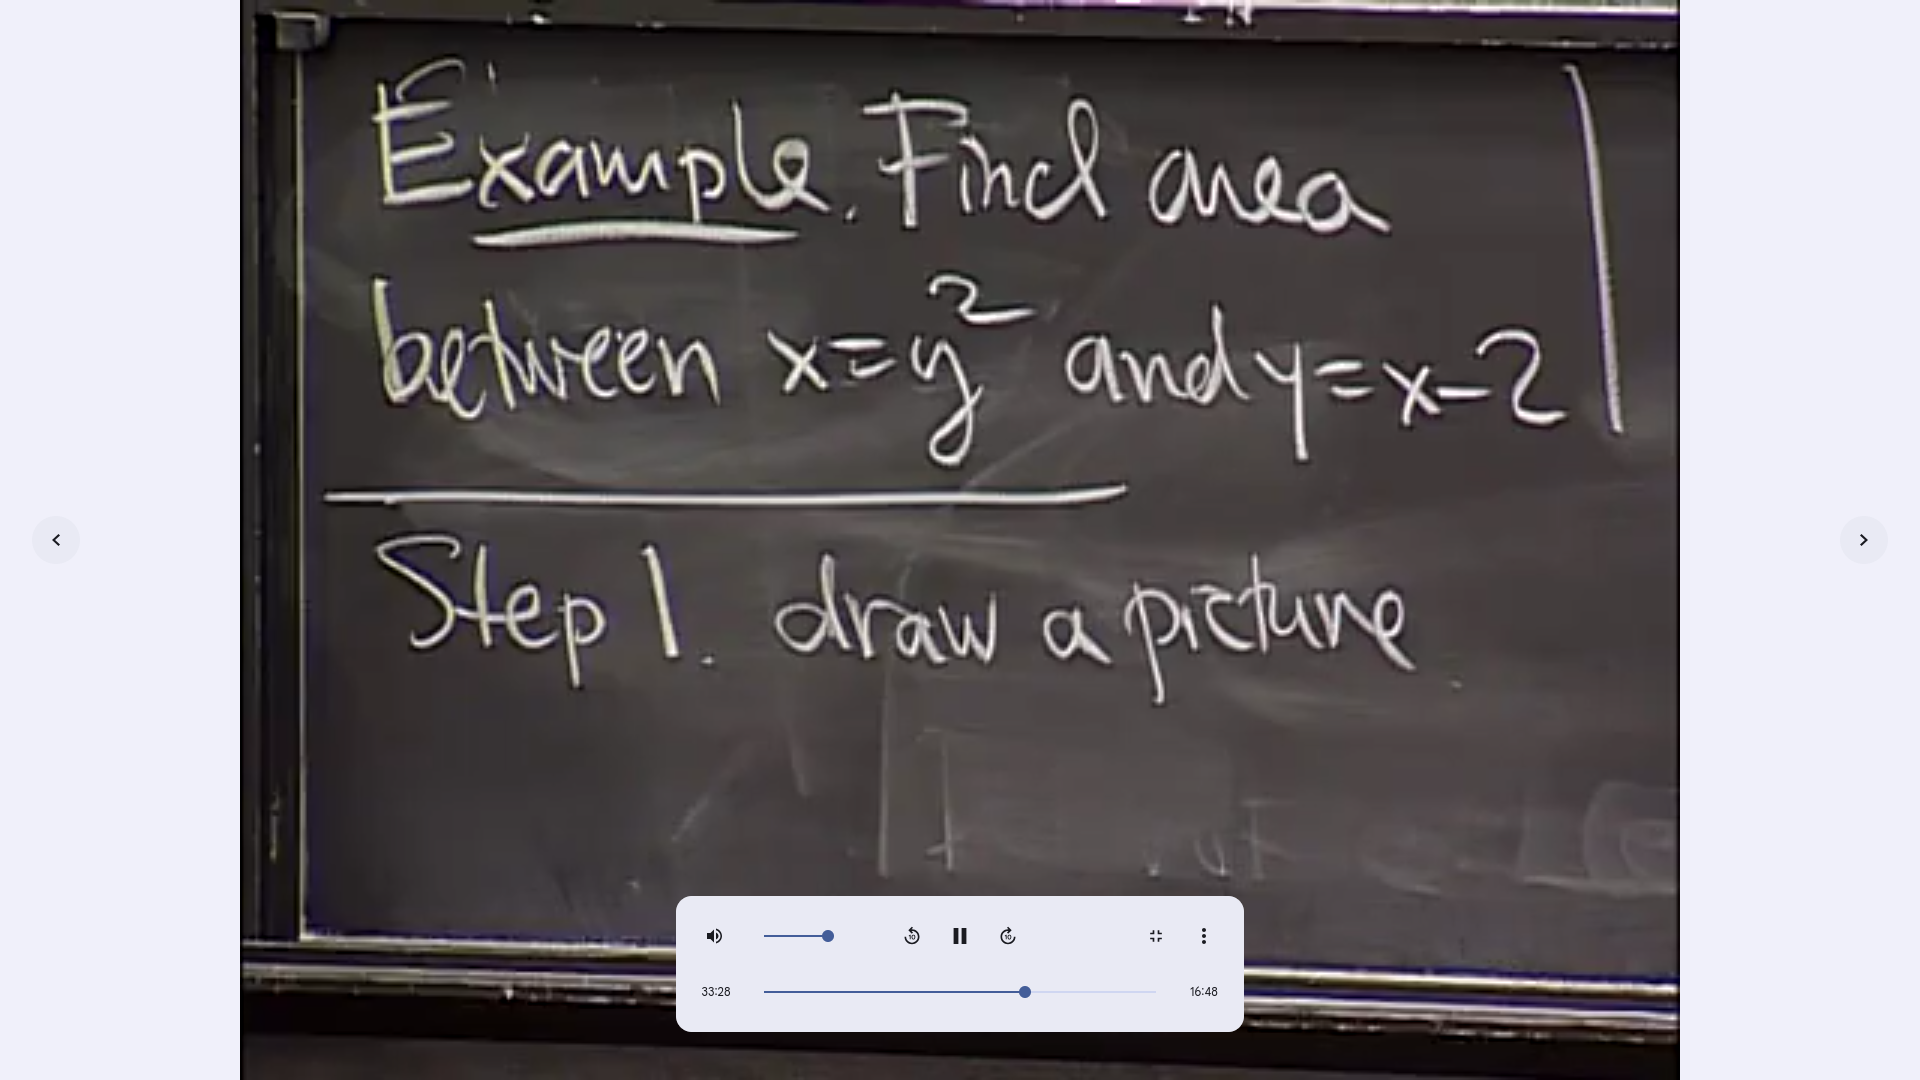 Example. Find area
between x=y² and y=x-2
Step 1. draw a picture
33:28
16:48